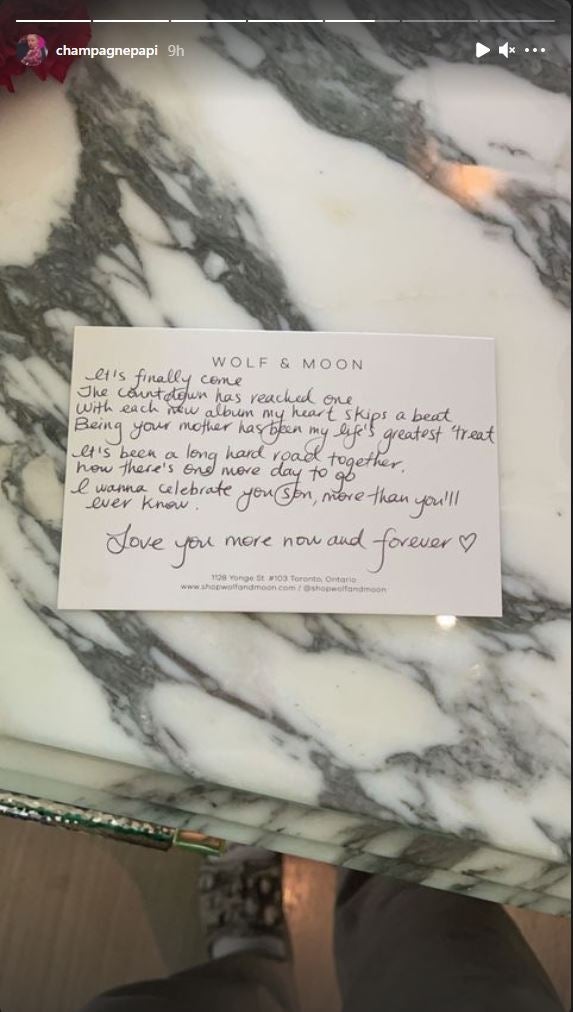 champagnepapi 9h
WOLF & MOON
It's finally come
The countdown has reached one
With each new album my heart skips a beat
Being your mother has been my life's greatest treat
It's been a long hard road together,
now there's one more day to go
I wanna celebrate you son, more than you'll
ever know.
Love you more now and forever ♡
1128 Yonge St. #103 Toronto, Ontario
www.shopwolfandmoon.com / @shopwolfandmoon